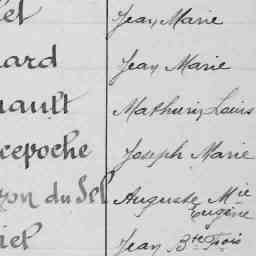 let Jean Marie
ard Jean Marie
nault Mathurin Louis
cepoche Joseph Marie
zon du Sel Auguste Mie
Eugène
iel Jean Bte Frois